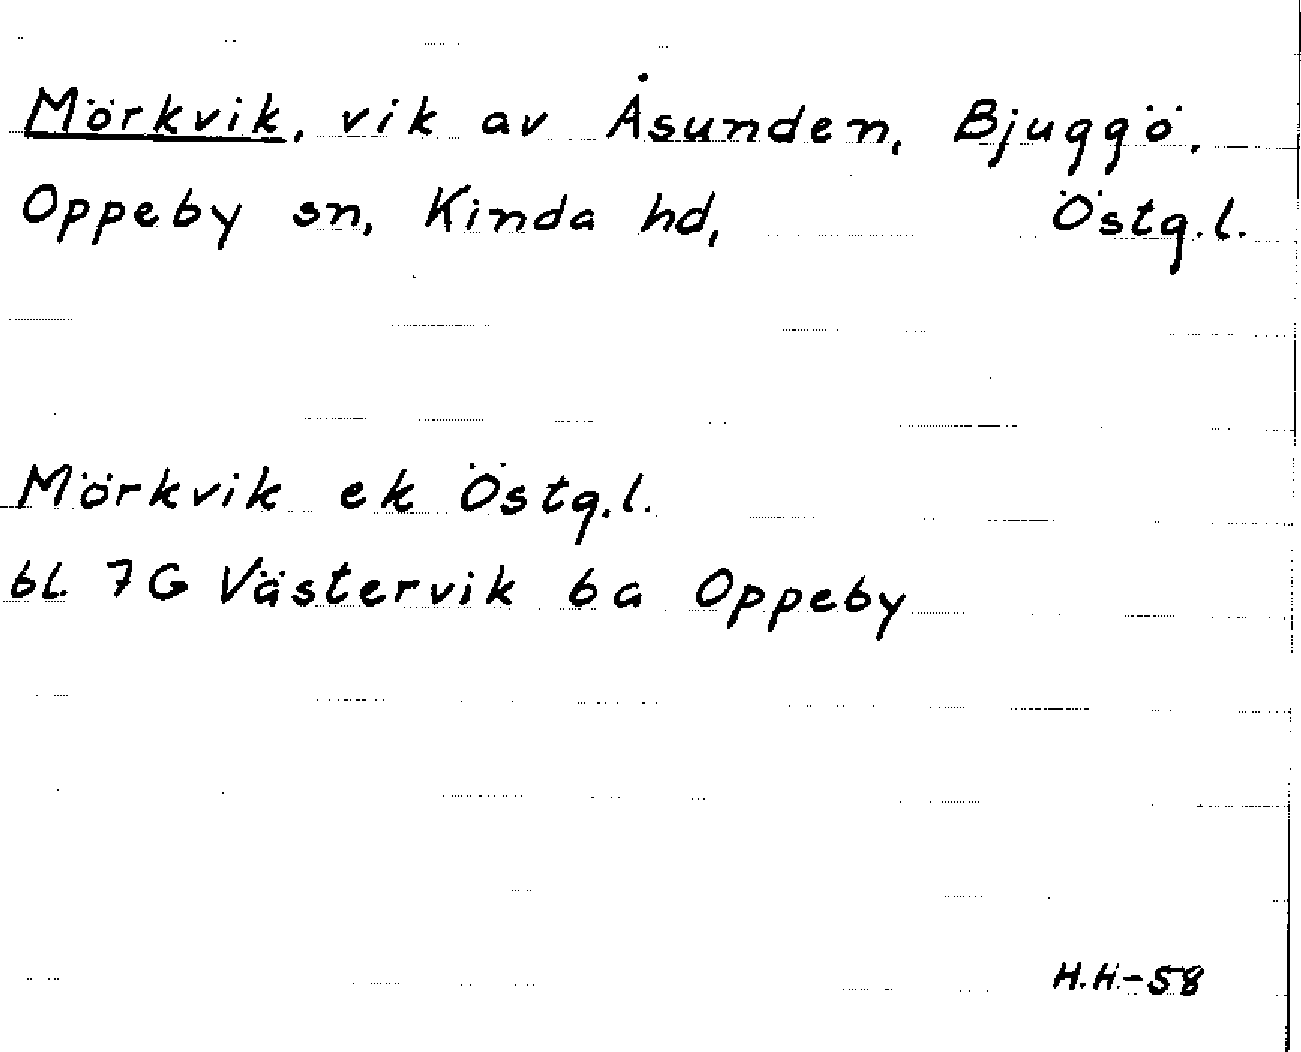 Mörkvik, vik av Åsunden, Bjuggö,
Oppeby sn, Kinda hd, Östg.l.
Mörkvik ek Östg.l.
bl. 7G Västervik 6a Oppeby
H.H.-58